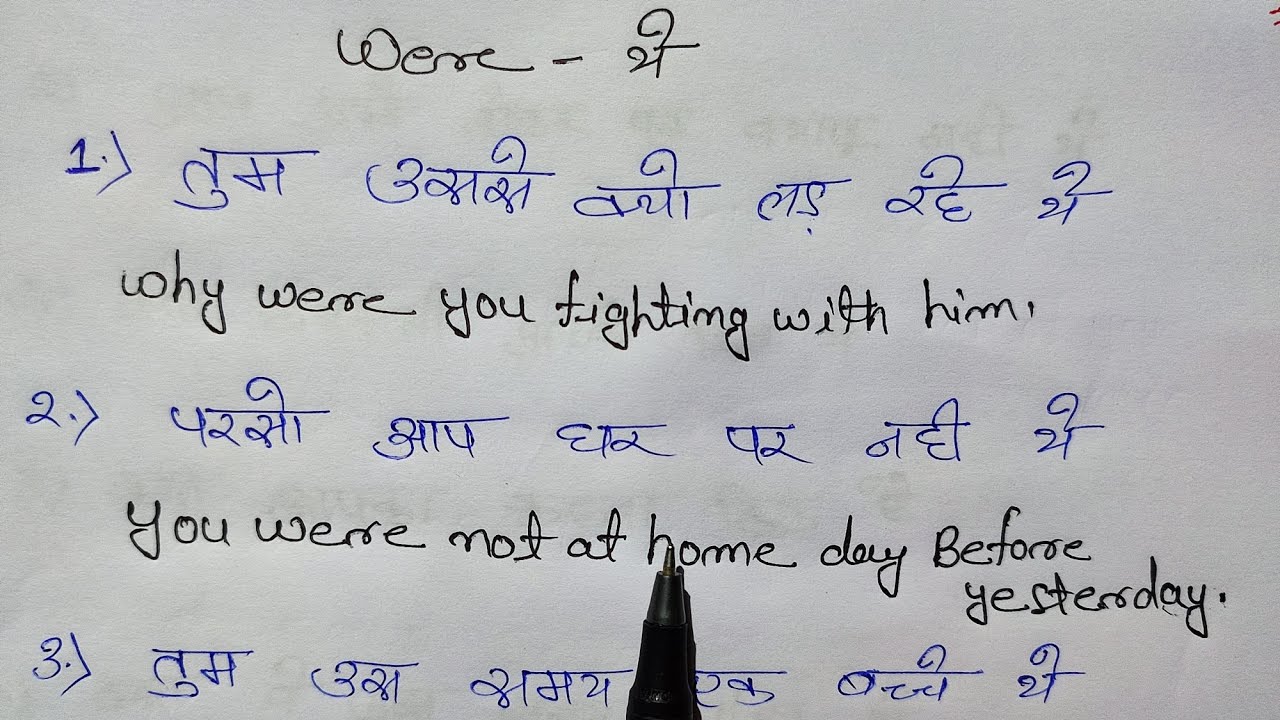 Were - थे
1.) तुम उससे क्यो लड़ रहे थे
why were you fighting with him.
२.) परसो आप घर पर नही थे
you were not at home day Before
yesterday.
३.) तुम उस समय एक बच्चे थे